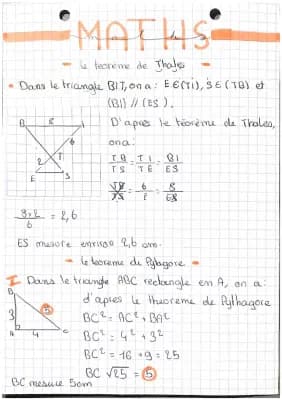 MATHS
- le teoreme de Thales -
• Dans le triangle BIT, on a : E∈(TI), S∈(TB) et
(BI) // (ES).
B 8 I
6
2 T
E S
D'apres le teorème de Thales,
on a :
TB/TS = TI/TE = BI/ES
TB/TS = 6/2 = 8/ES
8×2/6 = 2,6
ES mesure environ 2,6 cm.
- le teoreme de Pytagore -
I Dans le triangle ABC rectangle en A, on a :
B
3 5
A 4 C
d'apres le theoreme de Pythagore
BC² = AC² + BA²
BC² = 4² + 3²
BC² = 16 + 9 = 25
BC √25 = 5
BC mesure 5cm